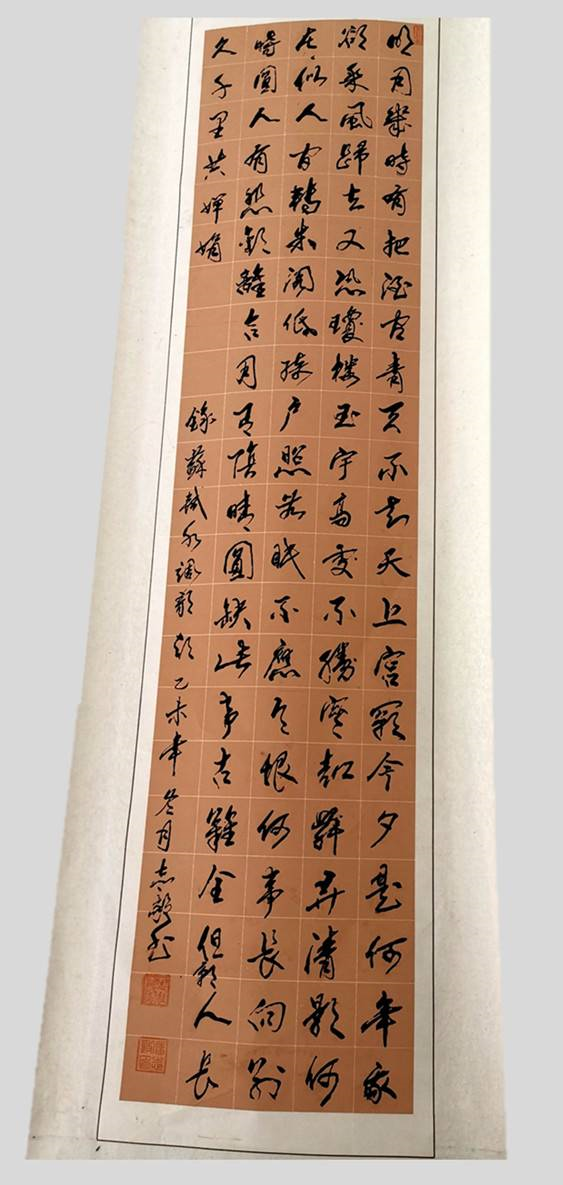 明月幾時有把酒问青天不知天上宮闕今夕是何年我
欲乘風歸去又恐瓊樓玉宇高處不勝寒起舞弄清影何
在似人间轉朱阁低绮户照無眠不應有恨何事長向别
時圓人有悲歡離合月有陰晴圓缺此事古難全但願人長
久千里共嬋娟
錄蘇軾水调歌頭乙未年冬月志书